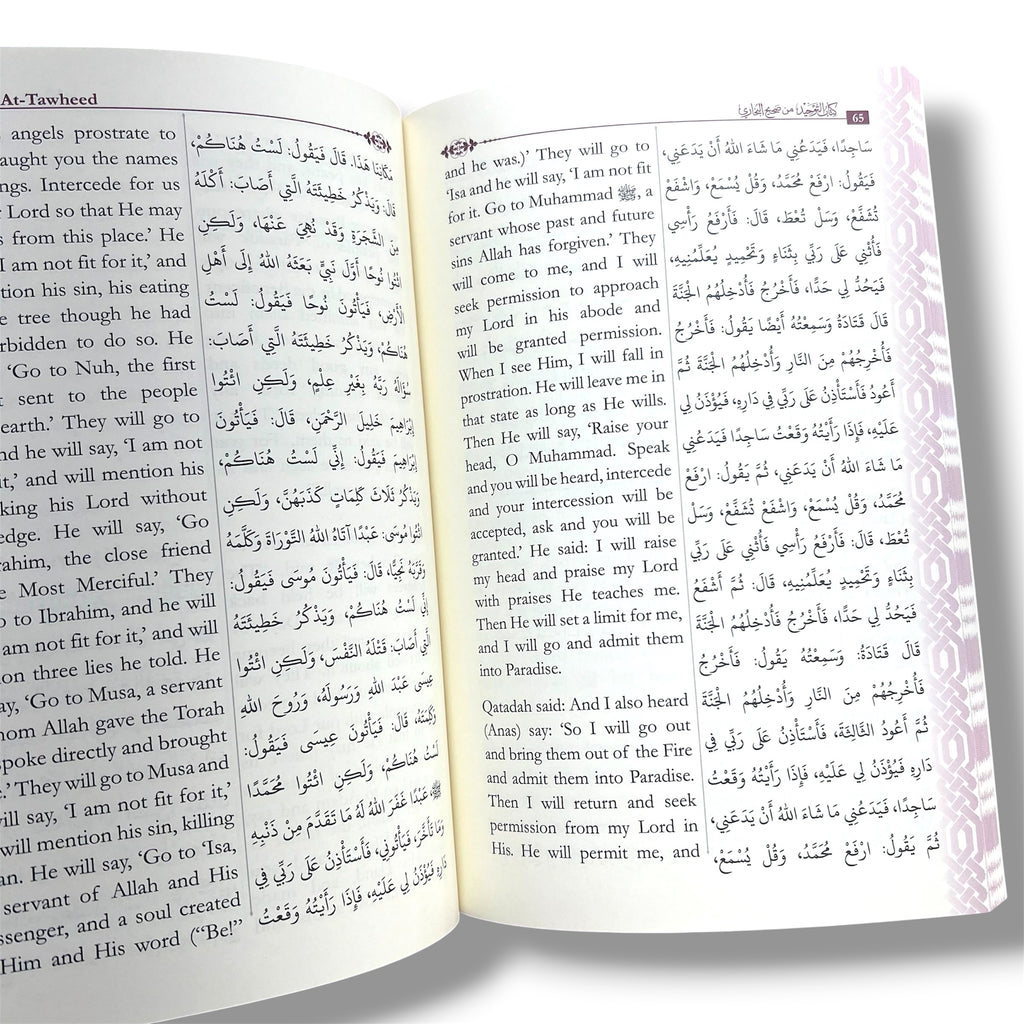 At-Tawheed
angels prostrate to
aught you the names
ngs. Intercede for us
r Lord so that He may
s from this place.’ He
I am not fit for it,’ and
tion his sin, his eating
e tree though he had
rbidden to do so. He
‘Go to Nuh, the first
t sent to the people
earth.’ They will go to
nd he will say, ‘I am not
it,’ and will mention his
king his Lord without
edge. He will say, ‘Go
rahim, the close friend
e Most Merciful.’ They
o to Ibrahim, and he will
am not fit for it,’ and will
ion three lies he told. He
ay, ‘Go to Musa, a servant
hom Allah gave the Torah
spoke directly and brought
e.’ They will go to Musa and
will say, ‘I am not fit for it,’
will mention his sin, killing
an. He will say, ‘Go to ‘Isa,
servant of Allah and His
ssenger, and a soul created
Him and His word (“Be!”
مَكَانِنَا هَذَا. قَالَ فَيَقُولُ: لَسْتُ هُنَاكُمْ،
قَالَ: وَيَذْكُرُ خَطِيئَتَهُ الَّتِي أَصَابَ: أَكْلَهُ
مِنَ الشَّجَرَةِ وَقَدْ نُهِيَ عَنْهَا، وَلَكِنِ
ائْتُوا نُوحًا أَوَّلَ نَبِيٍّ بَعَثَهُ اللهُ إِلَى أَهْلِ
الْأَرْضِ، فَيَأْتُونَ نُوحًا فَيَقُولُ: لَسْتُ
هُنَاكُمْ، وَيَذْكُرُ خَطِيئَتَهُ الَّتِي أَصَابَ:
سُؤَالَهُ رَبَّهُ بِغَيْرِ عِلْمٍ، وَلَكِنِ ائْتُوا
إِبْرَاهِيمَ خَلِيلَ الرَّحْمَنِ، قَالَ: فَيَأْتُونَ
إِبْرَاهِيمَ فَيَقُولُ: إِنِّي لَسْتُ هُنَاكُمْ،
وَيَذْكُرُ ثَلَاثَ كَلِمَاتٍ كَذَبَهُنَّ، وَلَكِنِ
ائْتُوا مُوسَى: عَبْدًا آتَاهُ اللهُ التَّوْرَاةَ وَكَلَّمَهُ
وَقَرَّبَهُ نَجِيًّا، قَالَ: فَيَأْتُونَ مُوسَى فَيَقُولُ:
إِنِّي لَسْتُ هُنَاكُمْ، وَيَذْكُرُ خَطِيئَتَهُ
الَّتِي أَصَابَ: قَتْلَهُ النَّفْسَ، وَلَكِنِ ائْتُوا
عِيسَى عَبْدَ اللهِ وَرَسُولَهُ، وَرُوحَ اللهِ
وَكَلِمَتَهُ، قَالَ: فَيَأْتُونَ عِيسَى فَيَقُولُ:
لَسْتُ هُنَاكُمْ، وَلَكِنِ ائْتُوا مُحَمَّدًا
ﷺ، عَبْدًا غَفَرَ اللهُ لَهُ مَا تَقَدَّمَ مِنْ ذَنْبِهِ
وَمَا تَأَخَّرَ، فَيَأْتُونِي، فَأَسْتَأْذِنُ عَلَى رَبِّي فِي
دَارِهِ فَيُؤْذَنُ لِي عَلَيْهِ، فَإِذَا رَأَيْتُهُ وَقَعْتُ
كتاب التوحيد من صحيح البخاري
65
and he was.)’ They will go to
‘Isa and he will say, ‘I am not fit
for it. Go to Muhammad ﷺ, a
servant whose past and future
sins Allah has forgiven.’ They
will come to me, and I will
seek permission to approach
my Lord in his abode and
will be granted permission.
When I see Him, I will fall in
prostration. He will leave me in
that state as long as He wills.
Then He will say, ‘Raise your
head, O Muhammad. Speak
and you will be heard, intercede
and your intercession will be
accepted, ask and you will be
granted.’ He said: I will raise
my head and praise my Lord
with praises He teaches me.
Then He will set a limit for me,
and I will go and admit them
into Paradise.
Qatadah said: And I also heard
(Anas) say: ‘So I will go out
and bring them out of the Fire
and admit them into Paradise.
Then I will return and seek
permission from my Lord in
His. He will permit me, and
سَاجِدًا، فَيَدَعُنِي مَا شَاءَ اللهُ أَنْ يَدَعَنِي،
فَيَقُولُ: ارْفَعْ مُحَمَّدُ، وَقُلْ يُسْمَعْ، وَاشْفَعْ
تُشَفَّعْ، وَسَلْ تُعْطَ، قَالَ: فَأَرْفَعُ رَأْسِي
فَأُثْنِي عَلَى رَبِّي بِثَنَاءٍ وَتَحْمِيدٍ يُعَلِّمُنِيهِ،
فَيَحُدُّ لِي حَدًّا، فَأَخْرُجُ فَأُدْخِلُهُمُ الْجَنَّةَ
قَالَ قَتَادَةُ وَسَمِعْتُهُ أَيْضًا يَقُولُ: فَأَخْرُجُ
فَأُخْرِجُهُمْ مِنَ النَّارِ وَأُدْخِلُهُمُ الْجَنَّةَ ثُمَّ
أَعُودُ فَأَسْتَأْذِنُ عَلَى رَبِّي فِي دَارِهِ، فَيُؤْذَنُ لِي
عَلَيْهِ، فَإِذَا رَأَيْتُهُ وَقَعْتُ سَاجِدًا فَيَدَعُنِي
مَا شَاءَ اللهُ أَنْ يَدَعَنِي، ثُمَّ يَقُولُ: ارْفَعْ
مُحَمَّدُ، وَقُلْ يُسْمَعْ، وَاشْفَعْ تُشَفَّعْ، وَسَلْ
تُعْطَ، قَالَ: فَأَرْفَعُ رَأْسِي فَأُثْنِي عَلَى رَبِّي
بِثَنَاءٍ وَتَحْمِيدٍ يُعَلِّمُنِيهِ، قَالَ: ثُمَّ أَشْفَعُ
فَيَحُدُّ لِي حَدًّا، فَأَخْرُجُ فَأُدْخِلُهُمُ الْجَنَّةَ
قَالَ قَتَادَةُ: وَسَمِعْتُهُ يَقُولُ: فَأَخْرُجُ
فَأُخْرِجُهُمْ مِنَ النَّارِ وَأُدْخِلُهُمُ الْجَنَّةَ
ثُمَّ أَعُودُ الثَّالِثَةَ، فَأَسْتَأْذِنُ عَلَى رَبِّي فِي
دَارِهِ فَيُؤْذَنُ لِي عَلَيْهِ، فَإِذَا رَأَيْتُهُ وَقَعْتُ
سَاجِدًا، فَيَدَعُنِي مَا شَاءَ اللهُ أَنْ يَدَعَنِي،
ثُمَّ يَقُولُ: ارْفَعْ مُحَمَّدُ، وَقُلْ يُسْمَعْ،